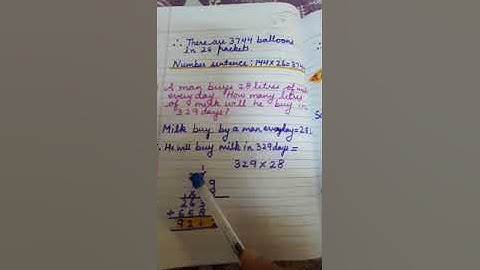 ∴ There are 3744 balloons
in 26 packets.
Number sentence: 144×26=374
A man buys 28 litres of
every day. How many litres
of milk will he buy in
329 days?
Milk buy by a man everyday=28L
∴ He will buy milk in 329 days=
329×28
1
9
263
+658
92